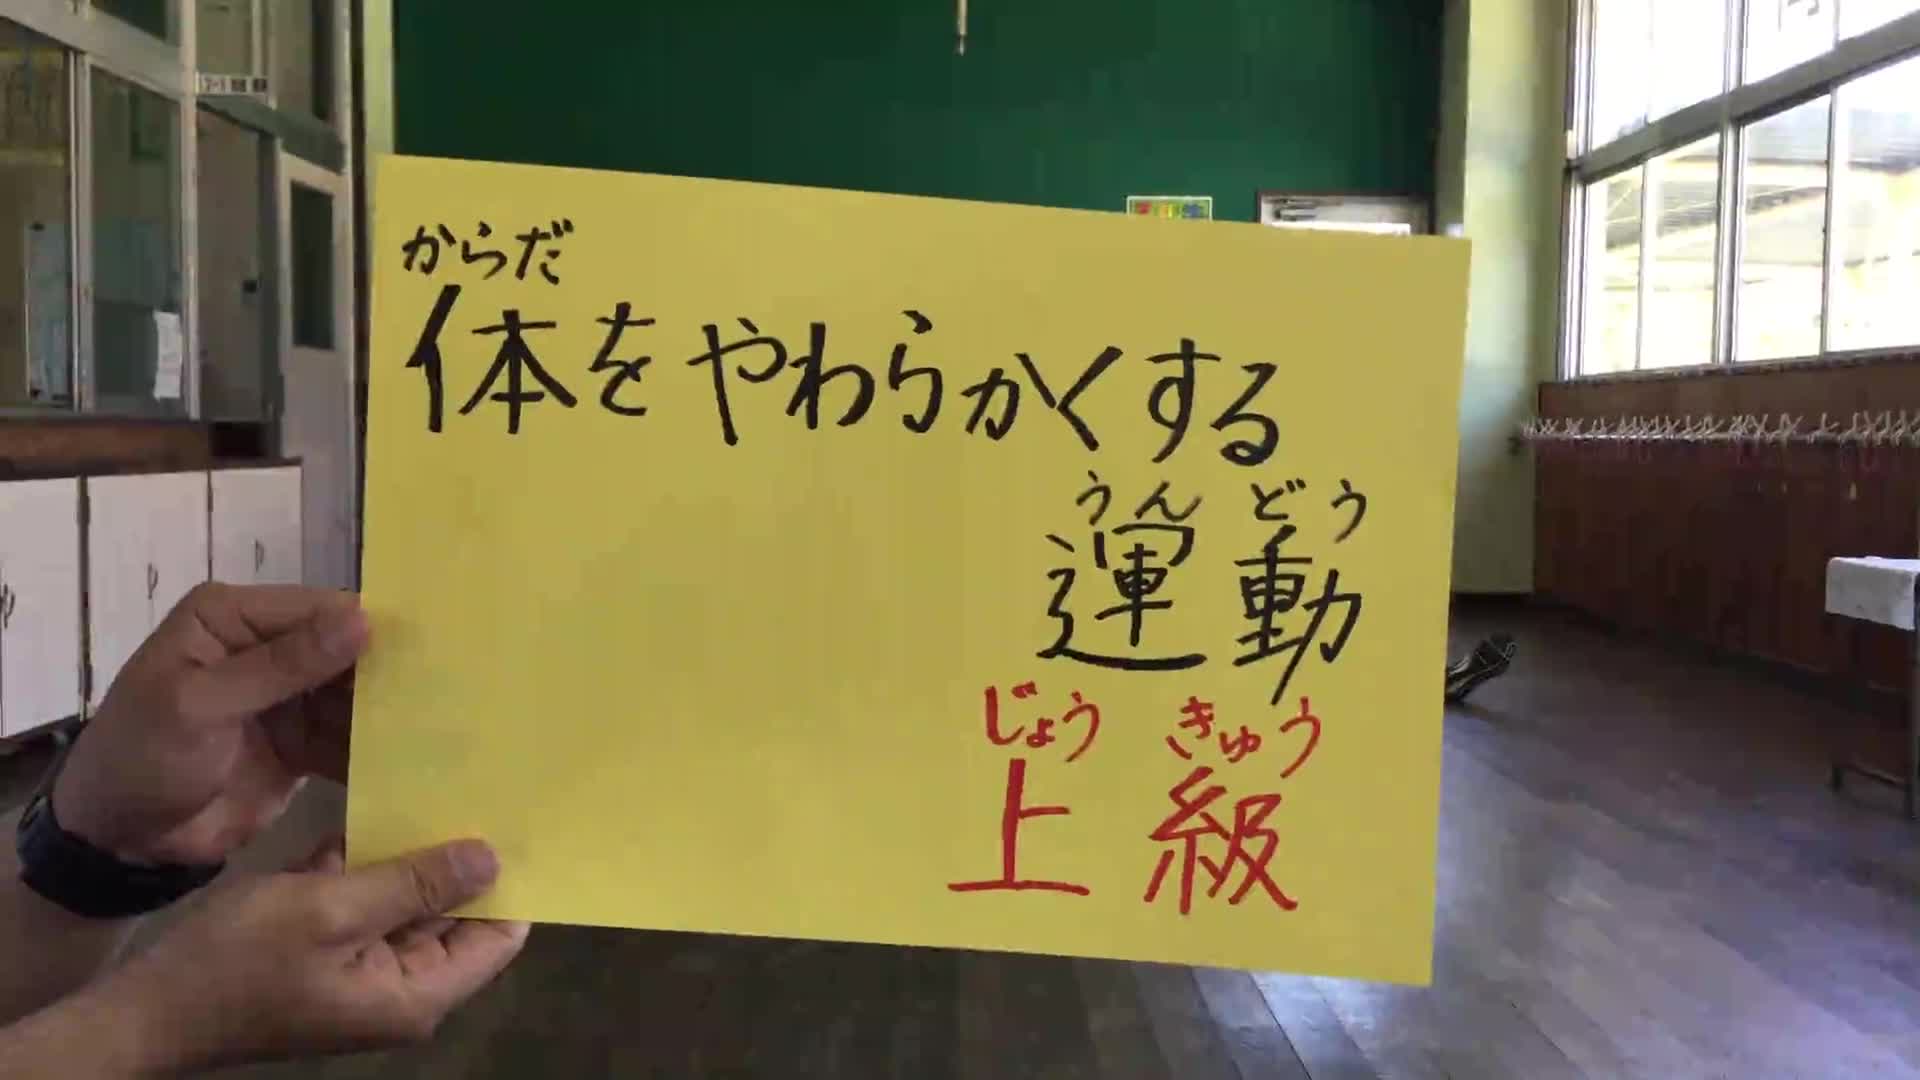 からだ
体をやわらかくする
うんどう
運動
じょうきゅう
上級